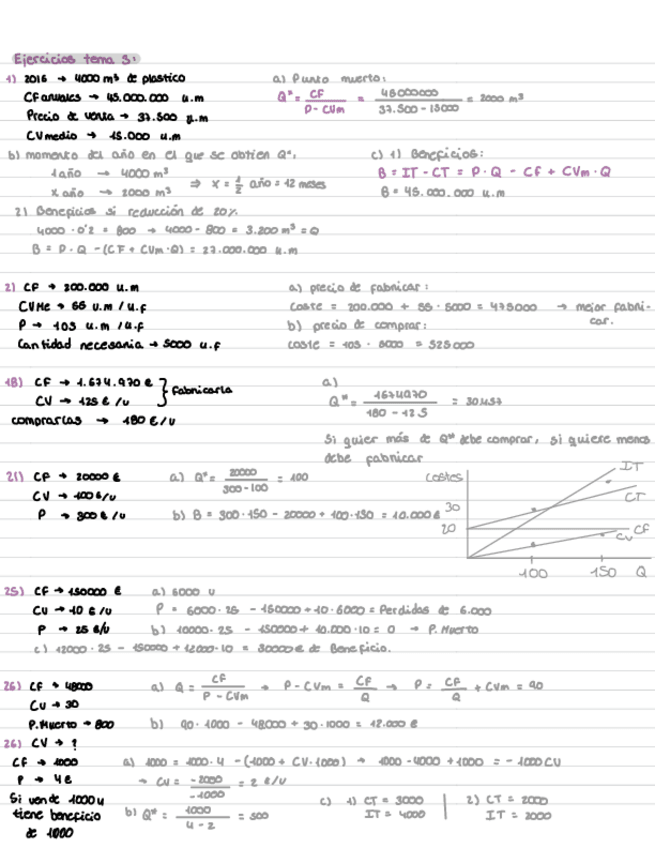 Ejercicios tema 3:
1) 2016 → 4000 m³ de plastico
CF anuales → 45.000.000 u.m
Precio de venta → 37.500 u.m
CV medio → 15.000 u.m
a) Punto muerto:
Q* = CF / P - CVm = 45000000 / 37.500 - 15000 = 2000 m³
b) momento del año en el que se obtien Q*,
1 año → 4000 m³
x año → 2000 m³ ⇒ x = 1/2 año = 12 meses
c) 1) Beneficios:
B = IT - CT = P · Q - CF + CVm · Q
B = 45.000.000 u.m
2) Beneficios si reducción de 20%
4000 · 0'2 = 800 → 4000 - 800 = 3.200 m³ = Q
B = P · Q - (CF + CVm · Q) = 27.000.000 u.m
2) CF → 200.000 u.m
CVMe → 55 u.m / u.f
P → 105 u.m / u.f
Cantidad necesaria → 5000 u.f
a) precio de fabricar:
coste = 200.000 + 55 · 5000 = 475000 → mejor fabri-
car.
b) precio de comprar:
coste = 105 · 5000 = 525000
18) CF → 1.674.970 €
CV → 125 € /u } fabricarla
comprarlas → 180 €/u
a)
Q* = 1674970 / 180 - 125 = 30.457
Si quier más de Q* debe comprar, si quiere menos
debe fabricar
21) CF → 20000 €
CV → 100 €/u
P → 300 € /u
a) Q* = 20000 / 300 - 100 = 100
b) B = 300 · 150 - 20000 + 100 · 150 = 10.000 €
costes
IT
CT
30
20
CF
CV
100 150 Q
25) CF → 150000 €
CV → 10 € /u
P → 25 €/u
a) 6000 u
P = 6000 · 25 - 150000 + 10 · 6000 = Perdidas de 6.000
b) 10000 · 25 - 150000 + 10.000 · 10 = 0 → P. Muerto
c) 12000 · 25 - 150000 + 12000 · 10 = 30000 € de Beneficio.
26) CF → 48000
CV → 30
P. Muerto → 800
a) Q = CF / P - CVm → P - CVm = CF / Q → P = CF / Q + CVm = 90
b) 90 · 1000 - 48000 + 30 · 1000 = 12.000 €
26) CV → ?
CF → 1000
P → 4€
Si vende 1000 u
tiene beneficio
de 1000
a) 1000 = 1000 · 4 - (1000 + CV · 1000) → 1000 - 4000 + 1000 = - 1000 CV
→ CV = -2000 / -1000 = 2 €/u
b) Q* = 1000 / 4 - 2 = 500
c) 1) CT = 3000
IT = 4000
2) CT = 2000
IT = 2000